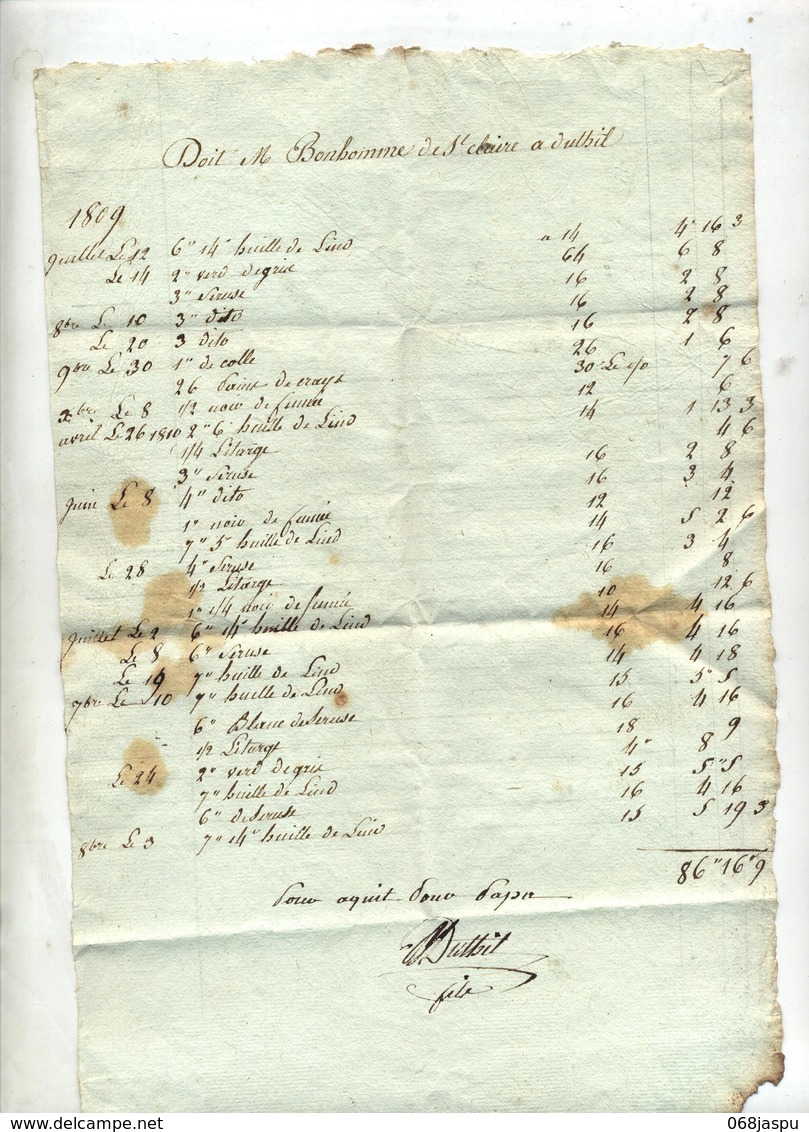 Doit M Bonhomme de St claire a duthil
1809
Juillet Le 12 6" 14" huille de Lind a 14 4" 16 3
Le 14 2" verd degris 64 6 8
3" Seruse 16 2 8
8bre Le 10 3" dito 16 2 8
Le 20 3 dito 16 2 8
9bre Le 30 1" de colle 26 1 6
26 de crays 30 Le c/o 7 6
xbre Le 8 1/2 noir de fumée 12 6
avril Le 26 1810 2" 6" huille de Lind 14 1 13 3
1/4 Litarge 4 6
3" Seruse 16 2 8
Juin Le 8 4" dito 16 3 4
1" noir de fumée 12 12
7" 5" huille de Lind 14 5 2 6
Le 28 4" Seruse 16 3 4
1/2 Litarge 16 8
1" 1/4 noir de fumée 10 12 6
Juillet Le 2 6" 14" huille de Lind 14 4 16
Le 8 6" Seruse 16 4 16
Le 19 7" huille de Lind 14 4 18
7bre Le 10 7" huille de Lind 15 5" 5
6" Blanc de Seruse 16 4 16
1/2 Litarge 18 9
Le 24 2" verd degris 4" 8
7" huille de Lind 15 5" 5
6" de Seruse 16 4 16
8bre Le 3 7" 14" huille de Lind 15 5 19 3
86" 16" 9
Pour aquit Pour Papa
Duthil
fils
068jaspu